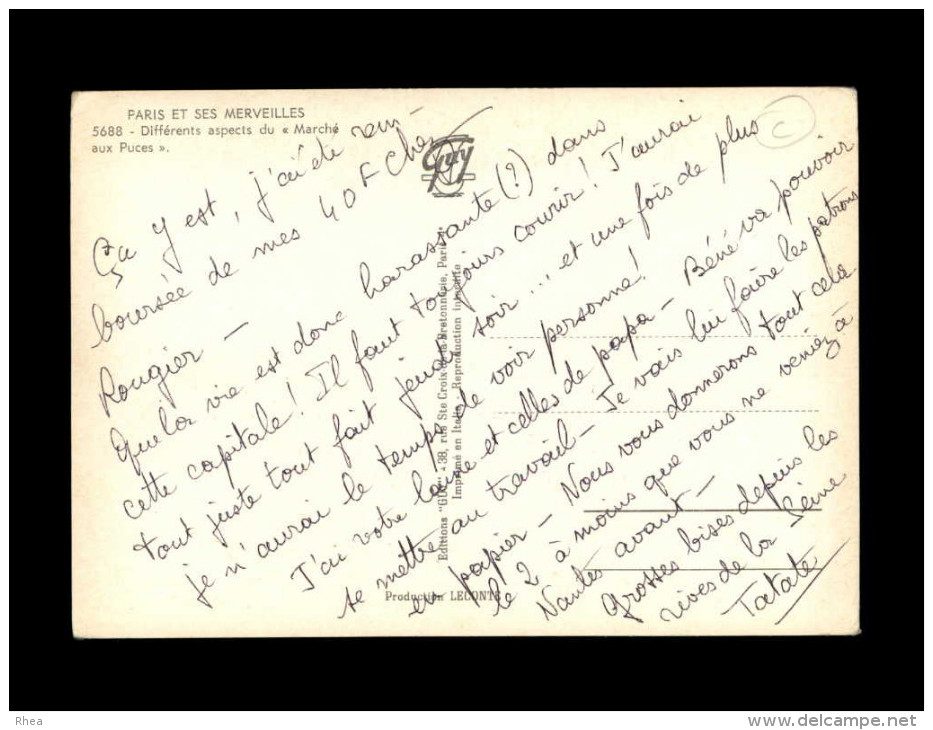 PARIS ET SES MERVEILLES
5688 - Différents aspects du « Marché
aux Puces ».
Guy
Ça y est, j'ai été rem
boursée de mes 40 F chez
Rougier —
Que la vie est donc harassante (?) dans
cette capitale ! Il faut toujours courir ! J'aurai
tout juste tout fait jeudi soir... et une fois de plus
je n'aurai le temps de voir personne !
J'ai votre laine et celles de papa — Béné va pouvoir
se mettre au travail — Je vais lui faire les patrons
en papier — Nous vous donnerons tout cela
le 2 à moins que vous ne veniez à
Nantes avant —
Grosses bises depuis les
rives de la Seine
Tatate
Editions "GUY" 38, rue Ste Croix de la Bretonnerie, Paris
Imprimé en Italie - Reproduction interdite
Production LECONTE
C
Rhea
www.delcampe.net